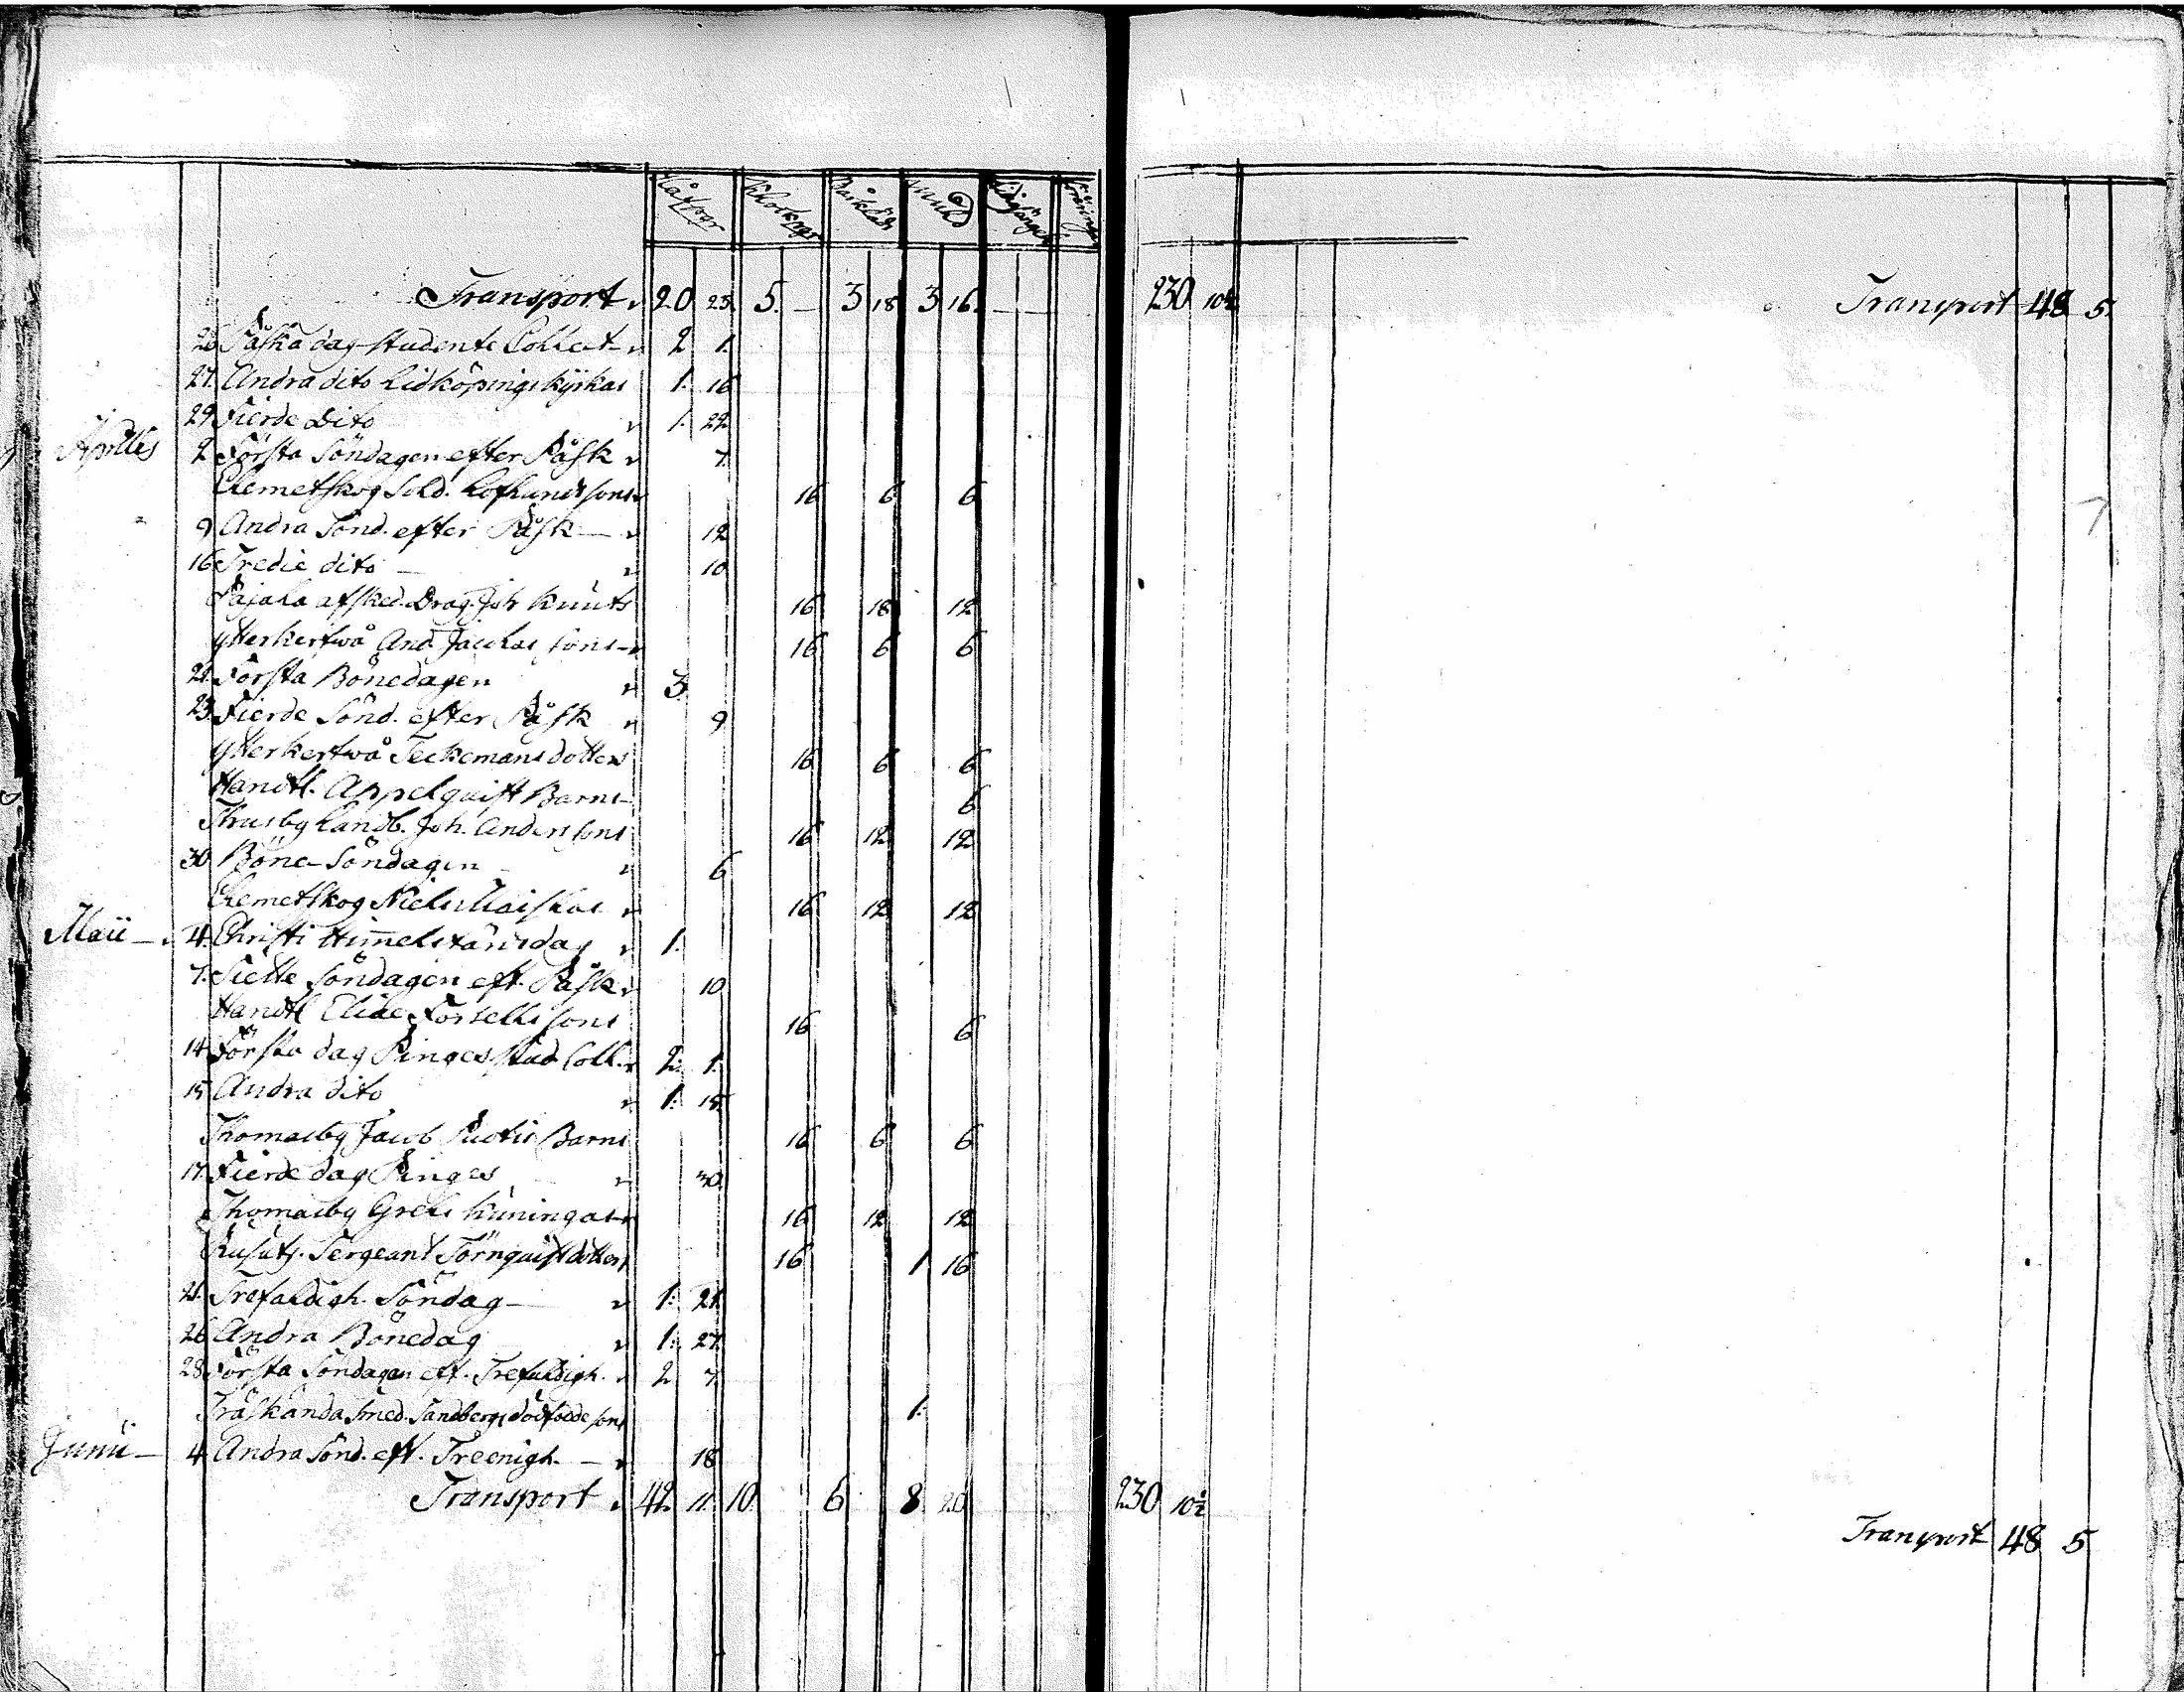 Håfvar Klockor Bårkläd
Transport 20 23. 5. — 3 18 3 16. — —
26 Påska dag Studente Collect 2 1.
27. Andra dito Lidköpings kyrkas 1. 16
29 Fierde Dito 1. 22
Aprilis 2 Första Söndagen efter Påsk 7.
Clemetskog Sold. Löflunds sons 16 6 6
9 Andra Sönd. efter Påsk — 12
16 Tredie dito — 10
Pajala afsked. Drag. Joh Knuts 16 18 12
Ytterkertwå And. sons 16 6 6
21. Första Bönedagen 3.
23. Fierde Sönd. efter Påsk 9
Ytterkertwå Teckemans dotters 16 6 6
Handtl. Appelquist Barns 6
Thusby Landb. Joh. Anderssons 16 12 12
30 Böne Söndagen 6
Clemetskog Niels 16 12 12
Maii — 4. Christi Himmelsfärdsdag 1.
7. Siette Söndagen eft. Påsk 10
Handtl Elias Forsells sons 16 6
14 Första dag Pinges stud Coll. 2. 1.
15 Andra dito 1. 15.
Thomasby Jacob Barns 16 6 6
17. Fierde dag Pinges 30
Thomasby Grels Kuningas 16 12 12
Sergeant Törnquist dotters 16 1 16
21. Trefaldigh. Söndag — 1. 21
26 Andra Bönedag 1. 27.
28 Första Söndagen eft. Trefaldigh. 2 7.
Träskända Smed. Sandbergs dödfödde sons 1.
Junii — 4 Andra Sönd. eft. Treenigh. — 18
Transport 42. 11. 10. 6 8 20
230 10½
Transport 48 5.
230 10½
Transport 48 5